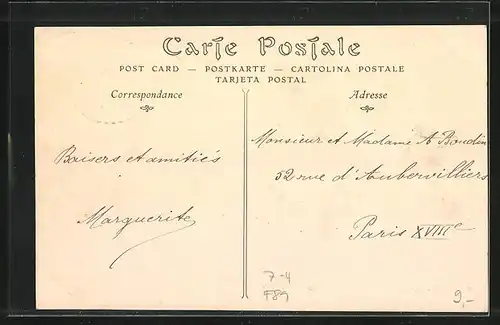 Carte Postale
POST CARD — POSTKARTE — CARTOLINA POSTALE
TARJETA POSTAL
Correspondance
Adresse
Baisers et amitiés
Marguerite
Monsieur et Madame A Boudin
52 rue d'Aubervilliers
Paris XVIIIe
7-4
F89
9,-